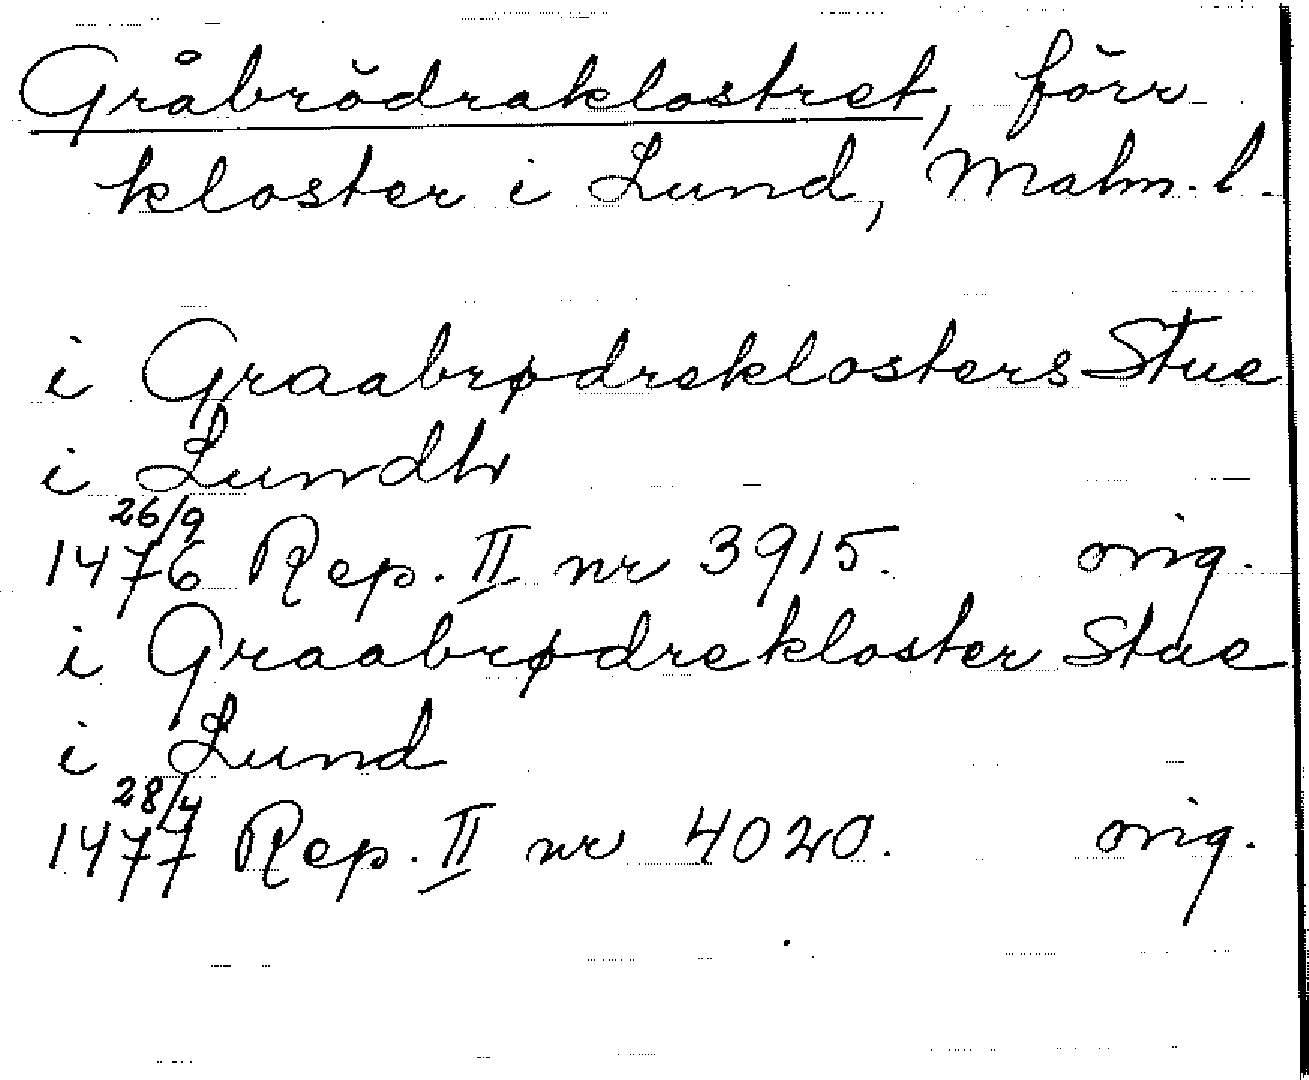 Gråbrödraklostret, förr
kloster i Lund, Malm. l.
i Graabrødreklosters Stue
i Lundh
26/9
1476 Rep. II nr 3915. orig.
i Graabrødrekloster Stue
i Lund
28/4
1477 Rep. II nr 4020. orig.